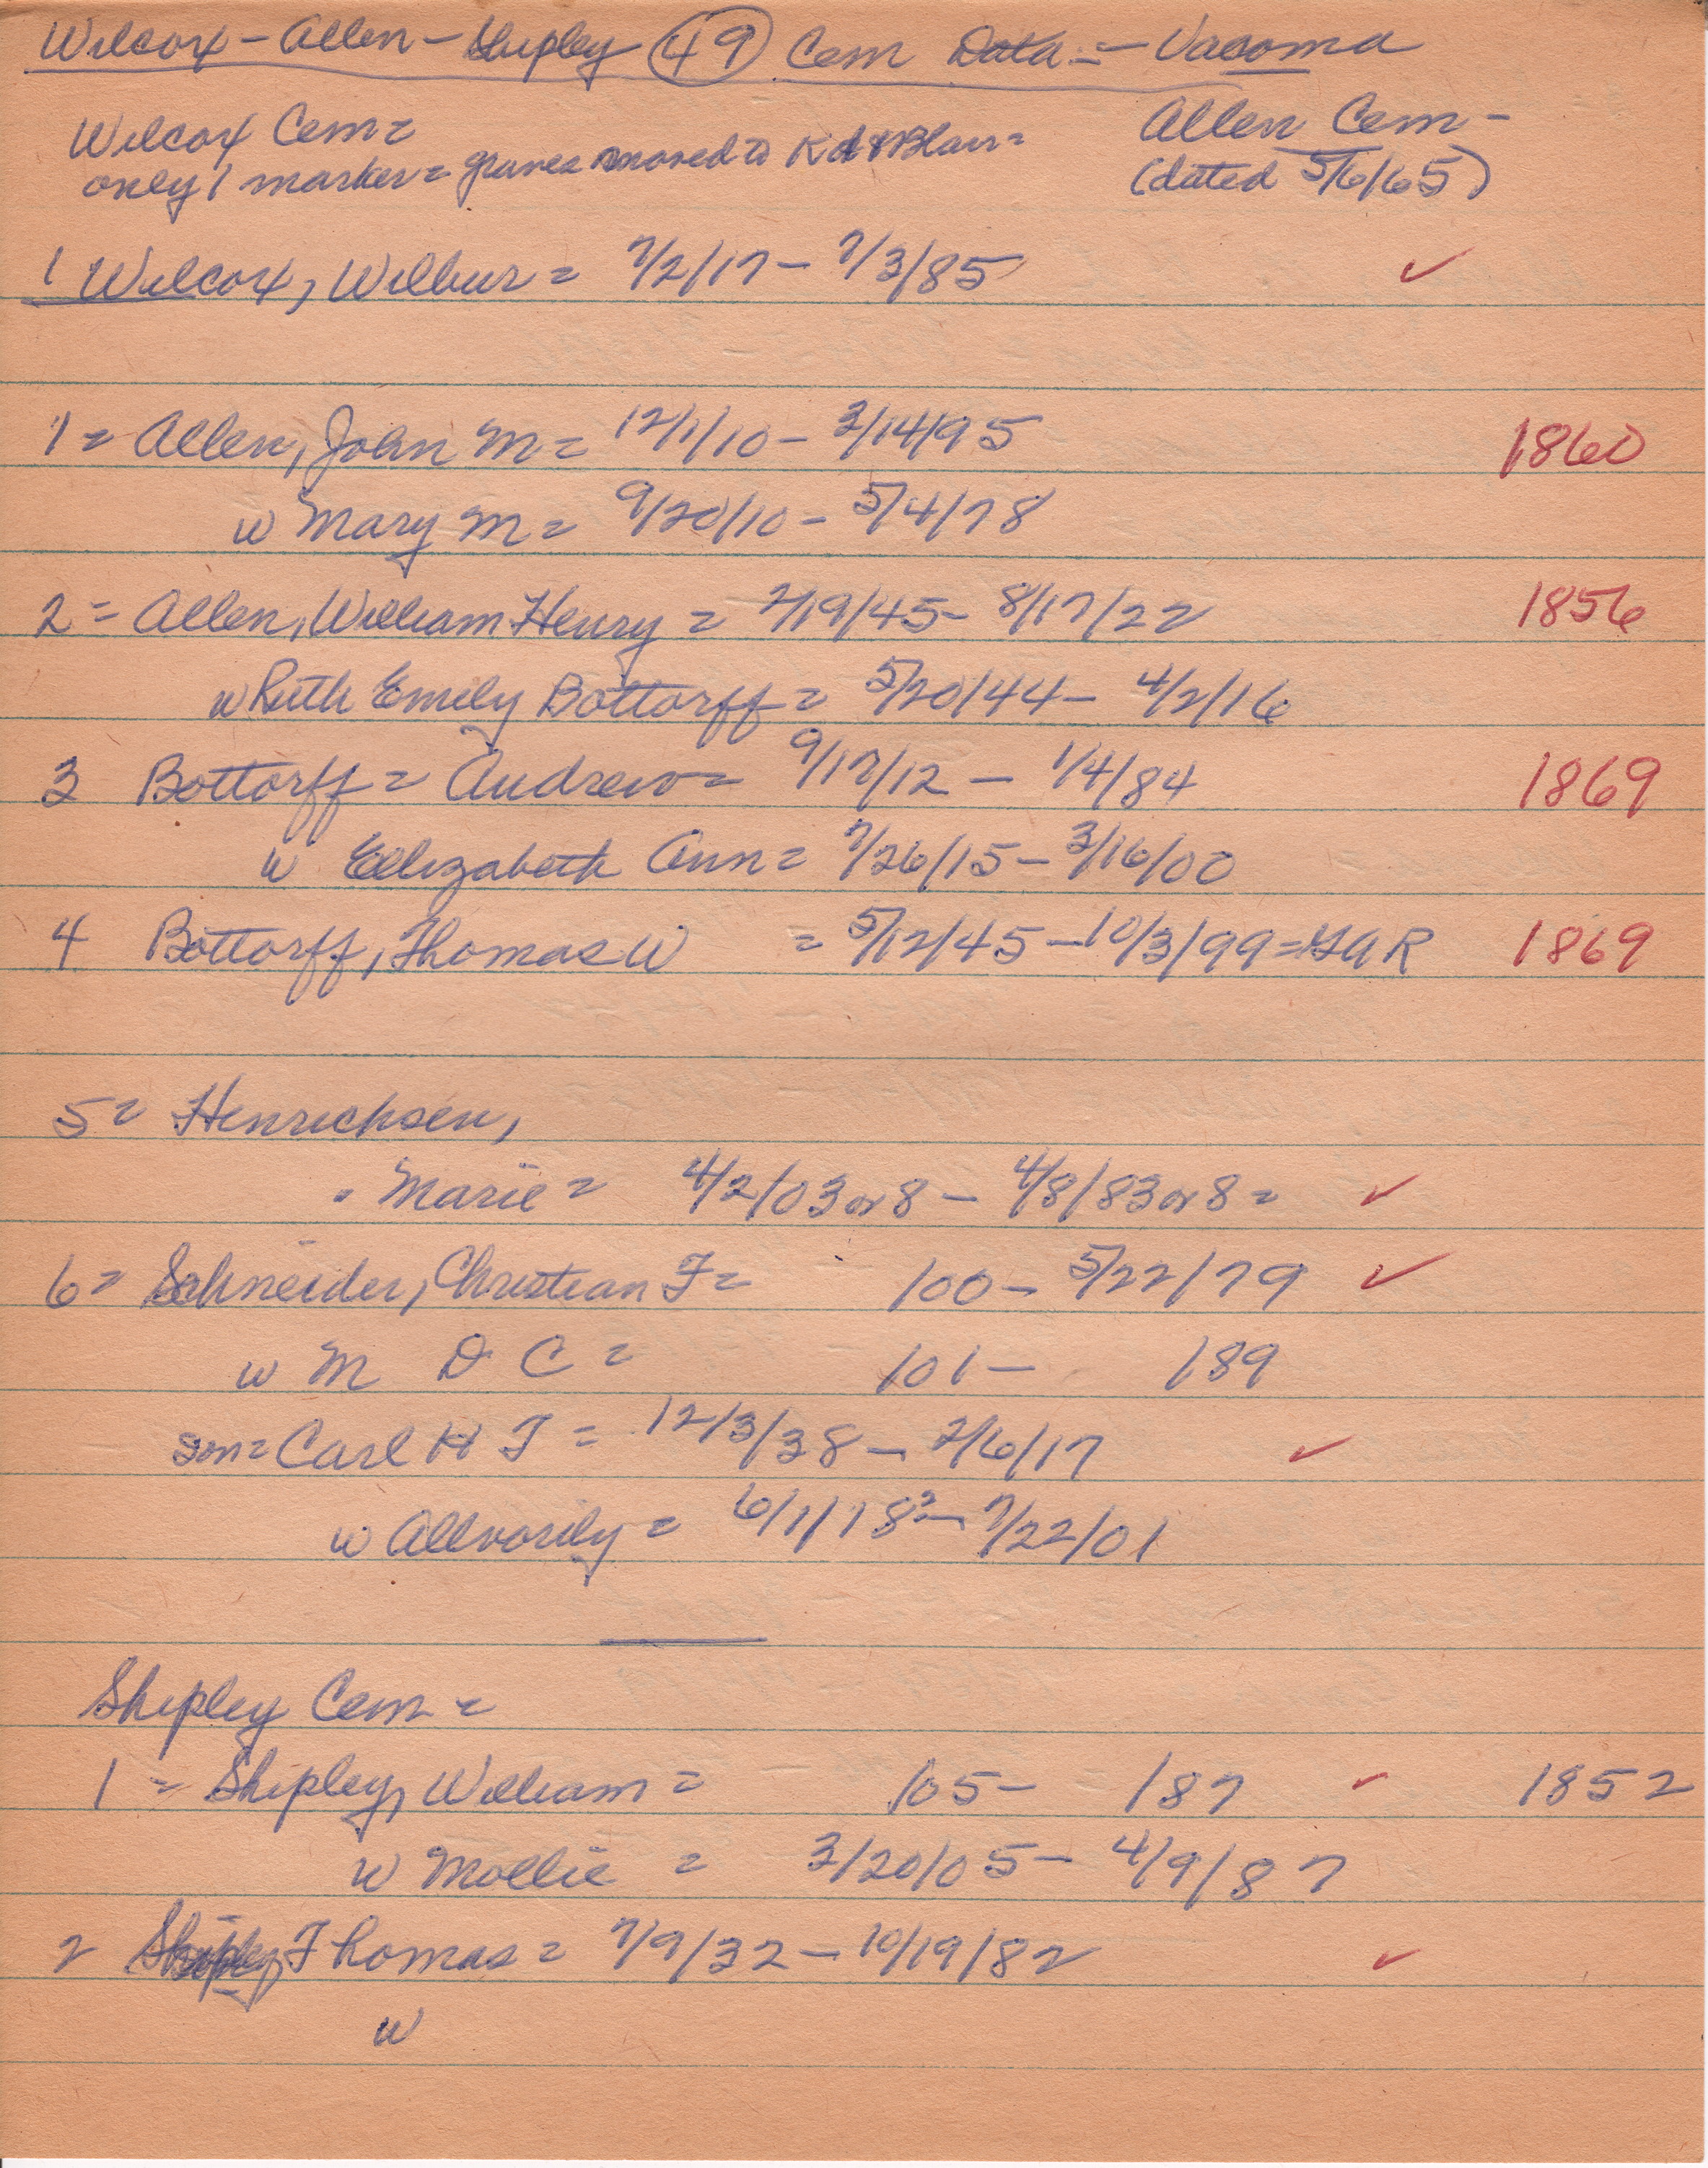 Wilcox - Allen - Shipley 49 Cem Data = Vacoma
Wilcox Cem =
only 1 marker = graves moved to Kd & Blair =
Allen Cem -
(dated 5/6/65)
1 Wilcox, Wilbur = 7/2/17 - 7/3/85 ✓
1 = Allen, John M = 12/1/10 - 3/14/95 1860
w Mary M = 9/20/10 - 5/4/78
2 = Allen, William Henry = 2/19/45 - 8/17/22 1856
w Ruth Emily Bottorff = 5/20/44 - 4/2/16
3 Bottorff = Andrew = 9/17/12 - 1/4/84 1869
w Ellizabeth Ann = 7/26/15 - 3/16/00
4 Bottorff, Thomas W = 5/12/45 - 10/3/99 = GAR 1869
5 = Henrichsen,
" Marie = 4/2/03 or 8 - 4/8/83 or 8 = ✓
6 = Schneider, Christian F = /00 - 5/22/79 ✓
w M D C = /01 - /89
son = Carl H F = 12/3/38 - 2/6/17 ✓
w Allvorily = 6/1/18? - 7/22/01
Shipley Cem =
1 = Shipley, William = /05 - /87 ✓ 1852
w Mollie = 3/20/05 - 4/9/87
2 Shipley Thomas = 7/9/32 - 10/19/82 ✓
w